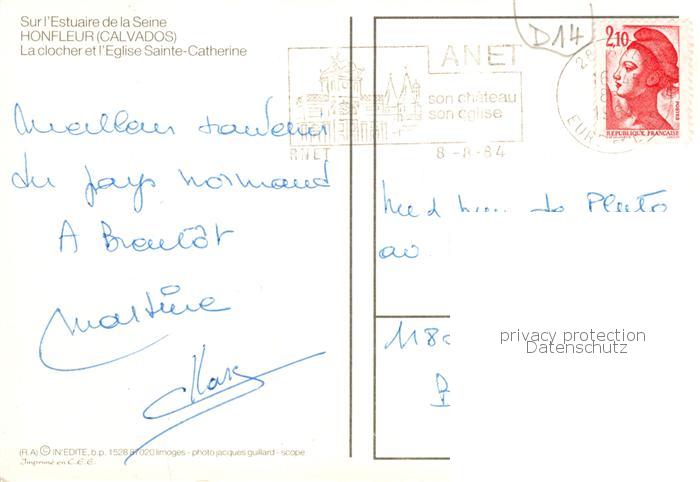 Sur l'Estuaire de la Seine
HONFLEUR (CALVADOS)
La clocher et l'Eglise Sainte-Catherine
ANET
son château
son église
ANET
8-8-84
D14
2,10
POSTES
REPUBLIQUE FRANÇAISE
28
16
8
EUR
Meilleurs
du pays normand
A Bientôt
Martine
Marc
de Pluto
au
118
privacy protection
Datenschutz
(R.A) © IN'EDITE, b.p. 1528 87020 limoges - photo jacques guillard - scope
Imprimé en C.E.E.